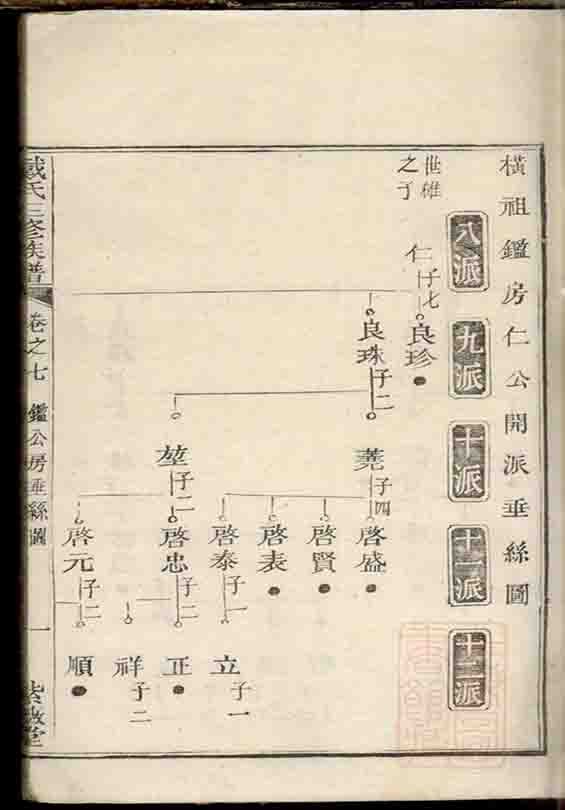 橫祖鑑房仁公開派垂絲圖
八派
九派
十派
十一派
十二派
世雄
之子
仁
子七
良珍
良珠
子二
蕘
子四
堃
子二
啓盛
啓賢
啓表
啓泰
子一
啓忠
子二
啓元
子二
立
子一
正
祥
子二
順
戴氏三修族譜
卷之七
鑑公房垂絲圖
一